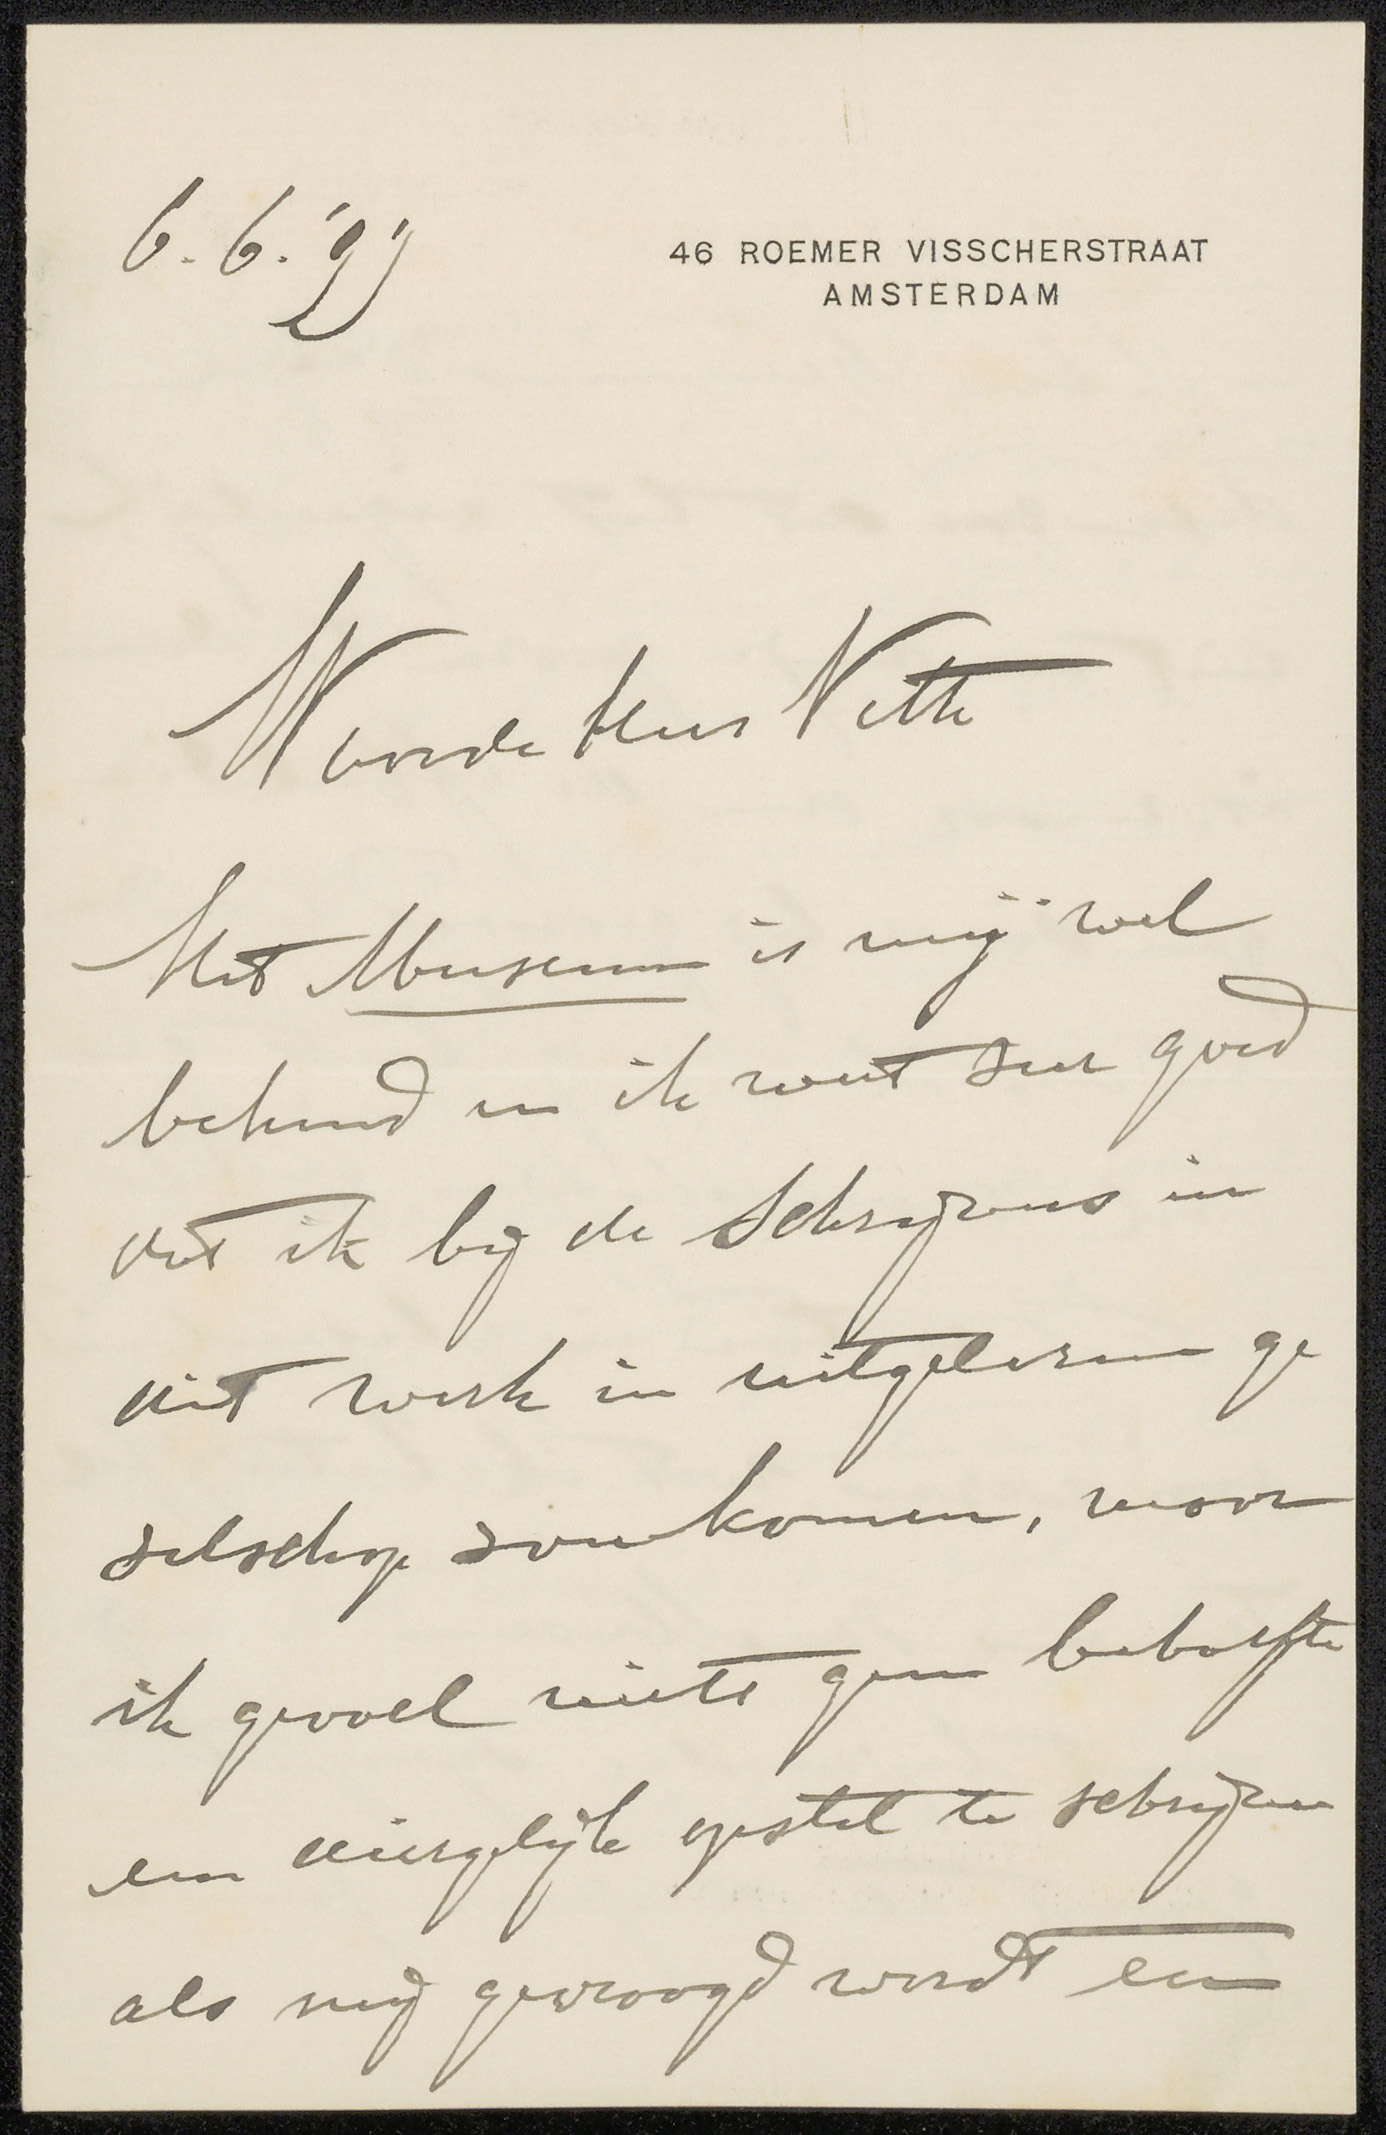 6.6.'99
46 ROEMER VISSCHERSTRAAT
AMSTERDAM
Waarde Heer Veth
Het Museum is mij wel
bekend en ik weet zeer goed
dat ik bij de Schrijvers in
dit werk in uitgelezen ge
zelschap zou komen, maar
ik gevoel niets geen behoefte
een dergelijk opstel te schrijven
als mij gevraagd wordt een